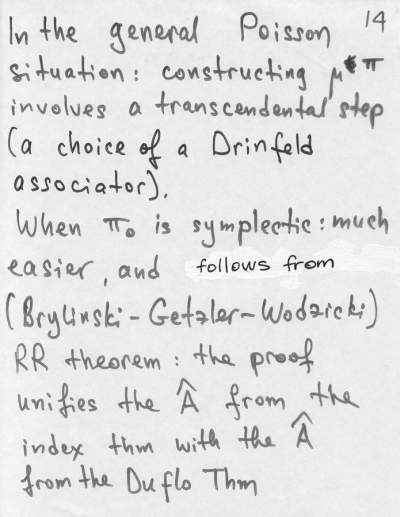 14
In the general Poisson
situation: constructing μ*π
involves a transcendental step
(a choice of a Drinfeld
associator).
When π₀ is symplectic: much
easier, and follows from
(Brylinski-Getzler-Wodzicki)
RR theorem: the proof
unifies the Â from the
index thm with the Â
from the Duflo Thm